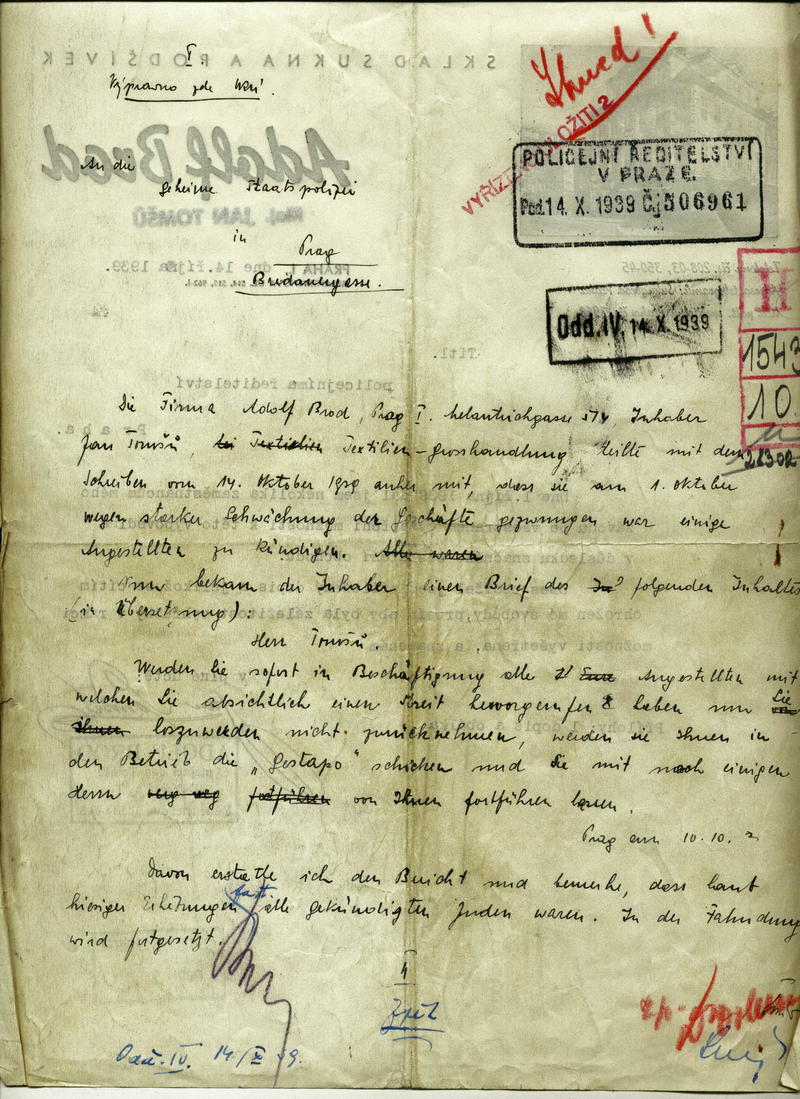 I.
Výpravno zde
Ihned!
VYŘÍZENO ULOŽITI 2
POLICEJNÍ ŘEDITELSTVÍ
V PRAZE.
Pod. 14. X. 1939 Čj. 506961
An die
Geheime Staatspolizei
in
Prag
Bredauergasse.
Odd. IV. 14. X. 1939
H
1543
10
21302
Die Firma Adolf Brod, Prag I. Melantrichgasse 574, Inhaber
Jan Tomšů, bei Textilien Textilien-Grosshandlung teilte mit dem
Schreiben vom 14. Oktober 1939 anher mit, dass sie am 1. Oktober
wegen starker Schwächung der Geschäfte gezwungen war einige
Angestellten zu kündigen. Alle waren
Nun bekam der Inhaber einen Brief des folgenden Inhaltes
(in Übersetzung):
Herr Tomšů.
Werden Sie sofort in Beschäftigung alle Angestellten mit
welchen Sie absichtlich einen Streit hervorgerufen haben um Sie
ihnen loszuwerden nicht zurücknehmen, werden sie Ihnen in
den Betrieb die „Gestapo" schicken und Sie mit noch einigen
Herrn weg fortführen von Ihnen fortführen lassen.
Prag am 10.10.
Davon erstatte ich den Bericht und bemerke, dass laut
hiesigen Erhebungen fast alle gekündigten Juden waren. In der Fahndung
wird fortgesetzt.
II
Zpět
Odd. IV. 14/X 39.